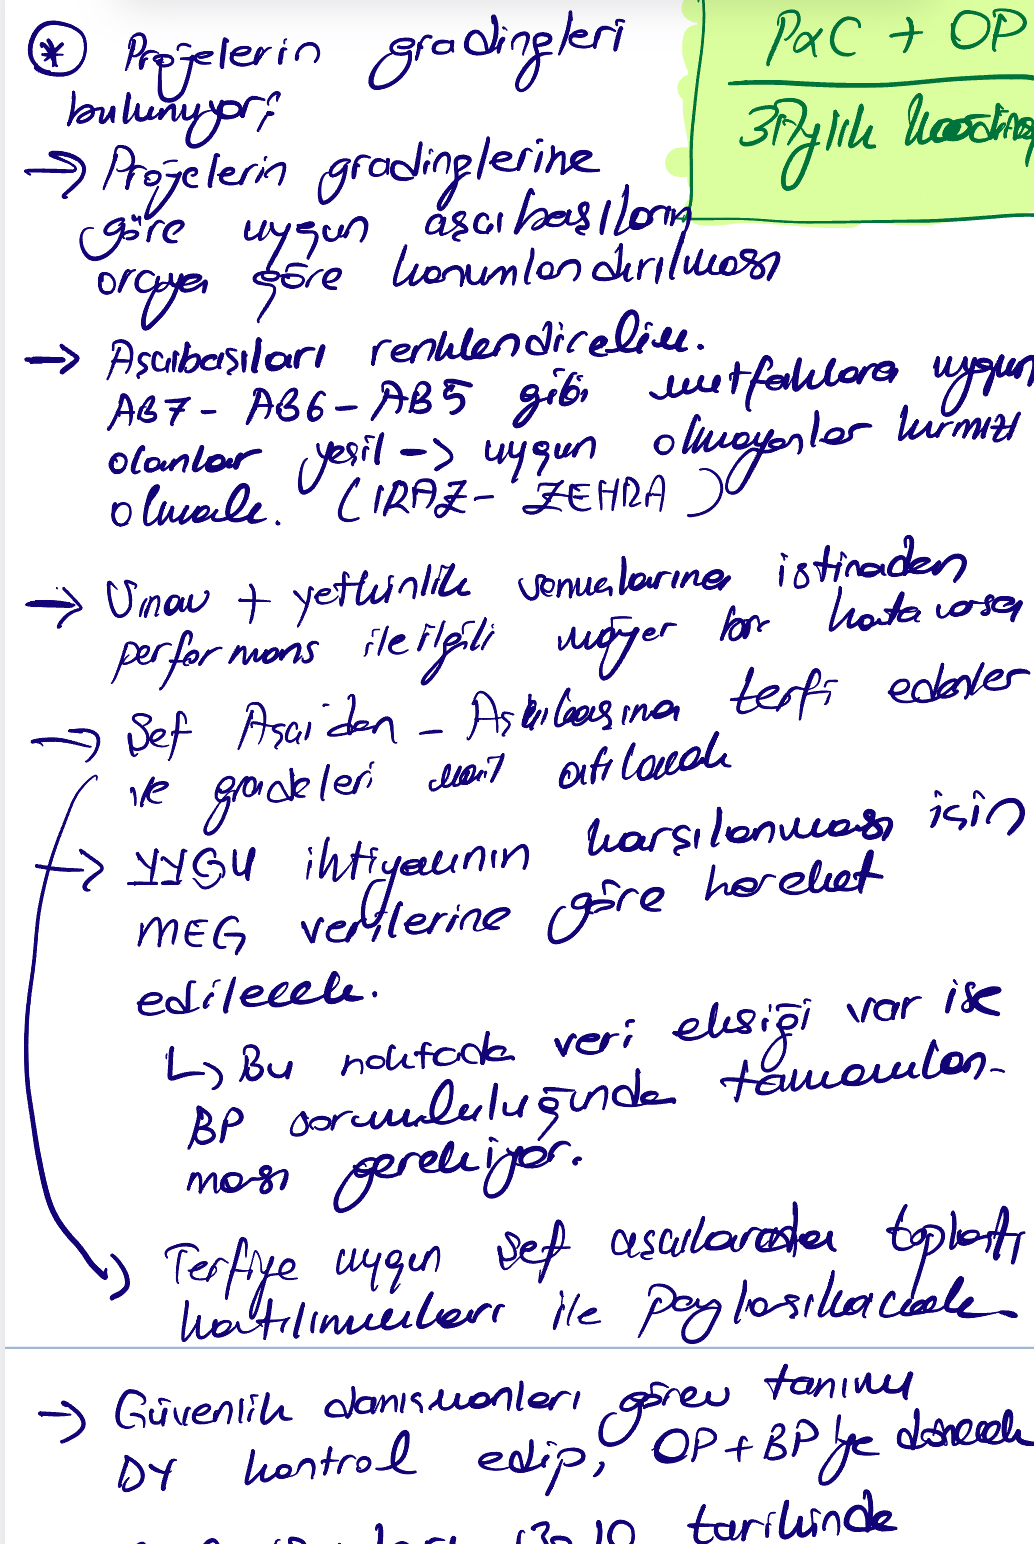 PxC + OP
3 Aylık
* Projelerin gradingleri
bulunuyor;
→ Projelerin gradinglerine
göre uygun aşcıbaşıların
oraya göre konumlandırılması
→ Aşcıbaşıları renklendirelim.
AB7 - AB6 - AB5 gibi mutfaklara uygun
olanlar yeşil → uygun olmayanlar kırmızı
olmalı. (IRAZ - ZEHRA)
→ Sınav + yetkinlik istinaden
performans ile ilgili bir hata varsa
→ Şef Aşcı'dan - Aşcıbaşına terfi edenler
ve gradeleri mail atılacak
→ YYGU ihtiyacının karşılanması için
MEG verilerine göre hareket
edilecek.
↳ Bu noktada veri eksiği var ise
BP sorumluluğunda tamamlan-
ması gerekiyor.
Terfiye uygun şef aşcılarda toplantı
katılımcıları ile paylaşılacak
→ Güvenlik danışmanları görev tanımı
DY kontrol edip, OP+BP'ye dönecek
tarihinde